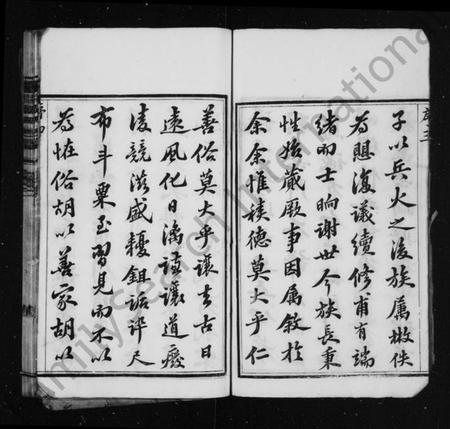 子以兵火之後族屬散佚
為思復議續修甫有端
緒而士晌謝世今族長秉
性始蕆厥事因屬敘於
余余惟積德莫大乎仁
善俗莫大乎讓去古日
遠風化日漓謙讓道廢
凌競滋盛耰鉏詬誶尺
布斗粟至習見而不以
為怪俗胡以善家胡以
FamilySearch International